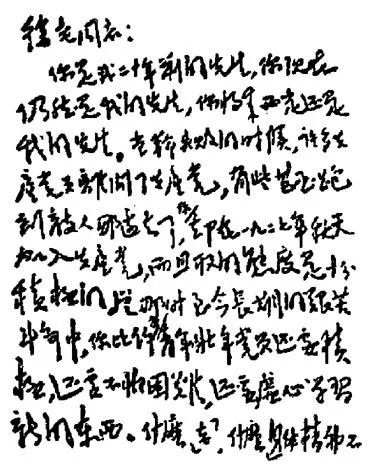 徐老同志:
你是我二十年前的先生,你现在
仍然是我的先生,你将来必定还是
我的先生。当革命失败的时候,许多共
产党员离开了共产党,有些甚至跑
到敌人那边去了,你却在一九二七年秋天
加入共产党,而且取的态度是十分
积极的。从那时至今长期的艰苦
斗争中,你比许多青年壮年党员还要积
极,还要不怕困难,还要虚心学习
新的东西。什么“老”,什么“身体精神不